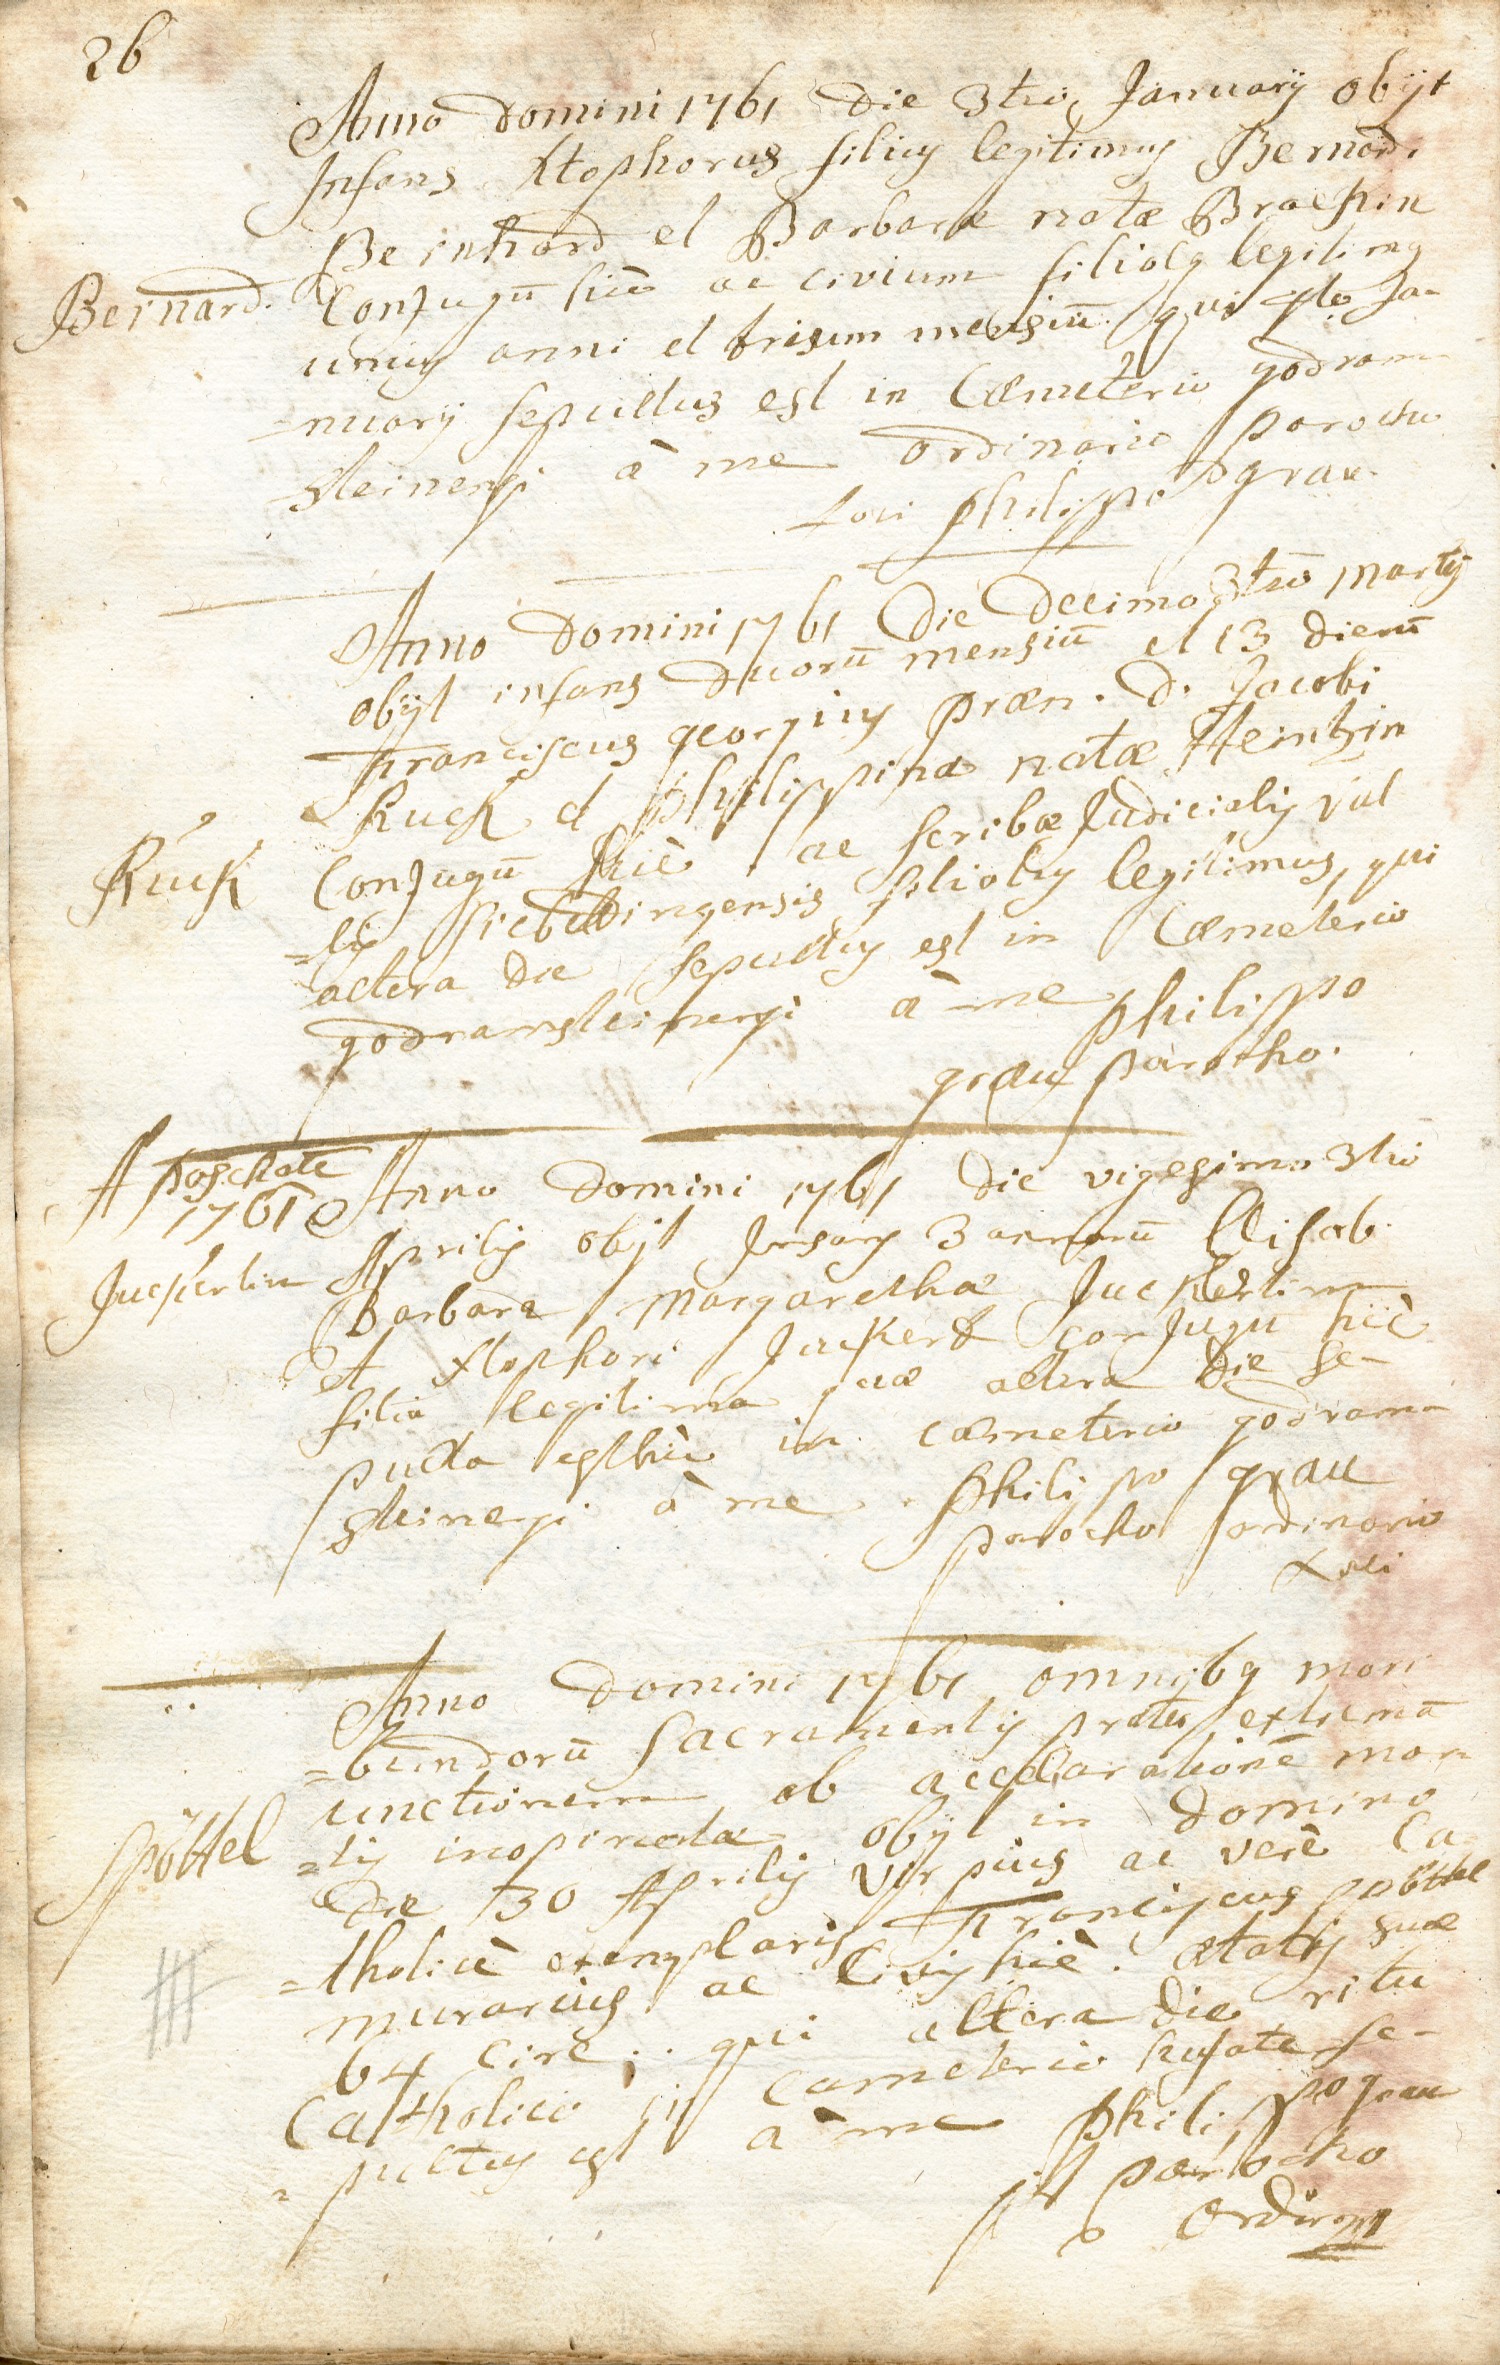 26
Anno Domini 1761 die 3tio January obÿt
Infans Xtophorus filius legitimus Bernard.
Bernhard et Barbara natæ Brackin
Bernard. Conjugū hic ac civium filiolq legitimq
unius anni et trium mensiū. qui 4to Ja-
=nuarÿ sepultus est in Cæmeterio godram-
=steinensi à me ordinario parocho
Loci philippo grau.
Anno Domini 1761 Die Decimo 3tio Martÿ
obÿt infans Duorū mensiū et 13 dierū
Franciscus georgius præn. D. Jacobi
Ruck et philippina natæ Heintzin
Rück Conjugū hic ac scribæ Judicialis val
=lis siebeldingensis filiolus legitimus, qui
altera die sepultus est in Cæmeterio
godramsteinensi à me philippo
grau parocho.
A paschate
1761 Anno Domini 1761 die vigesimo 3tio
Aprilis obÿt Infans 3 annorū Elisab.
Juckertin Barbara Margarethæ Juckertin
et Xtophori Juckert conjugū hic
filia legitima quæ altera die se-
pulta est hic in cæmeterio godram-
steinensi à me philippo grau
parocho ordinario
Loci
Anno Domini 1761 omnibq mori
=bundorū Sacramentis præter extremā
unctionem ob accelerationē mor-
Spöttel =tis inopinatæ obÿt in Domino
die 30 Aprilis vir pius ac verè Ca
=tholicè exemplaris Franciscus spöttel
murarius ac Civis hic. ætatis suæ
64 circ. qui altera die ritu
Catholico in Cæmeterio hujate se-
=pultus est à me philippo grau
parocho
ordin